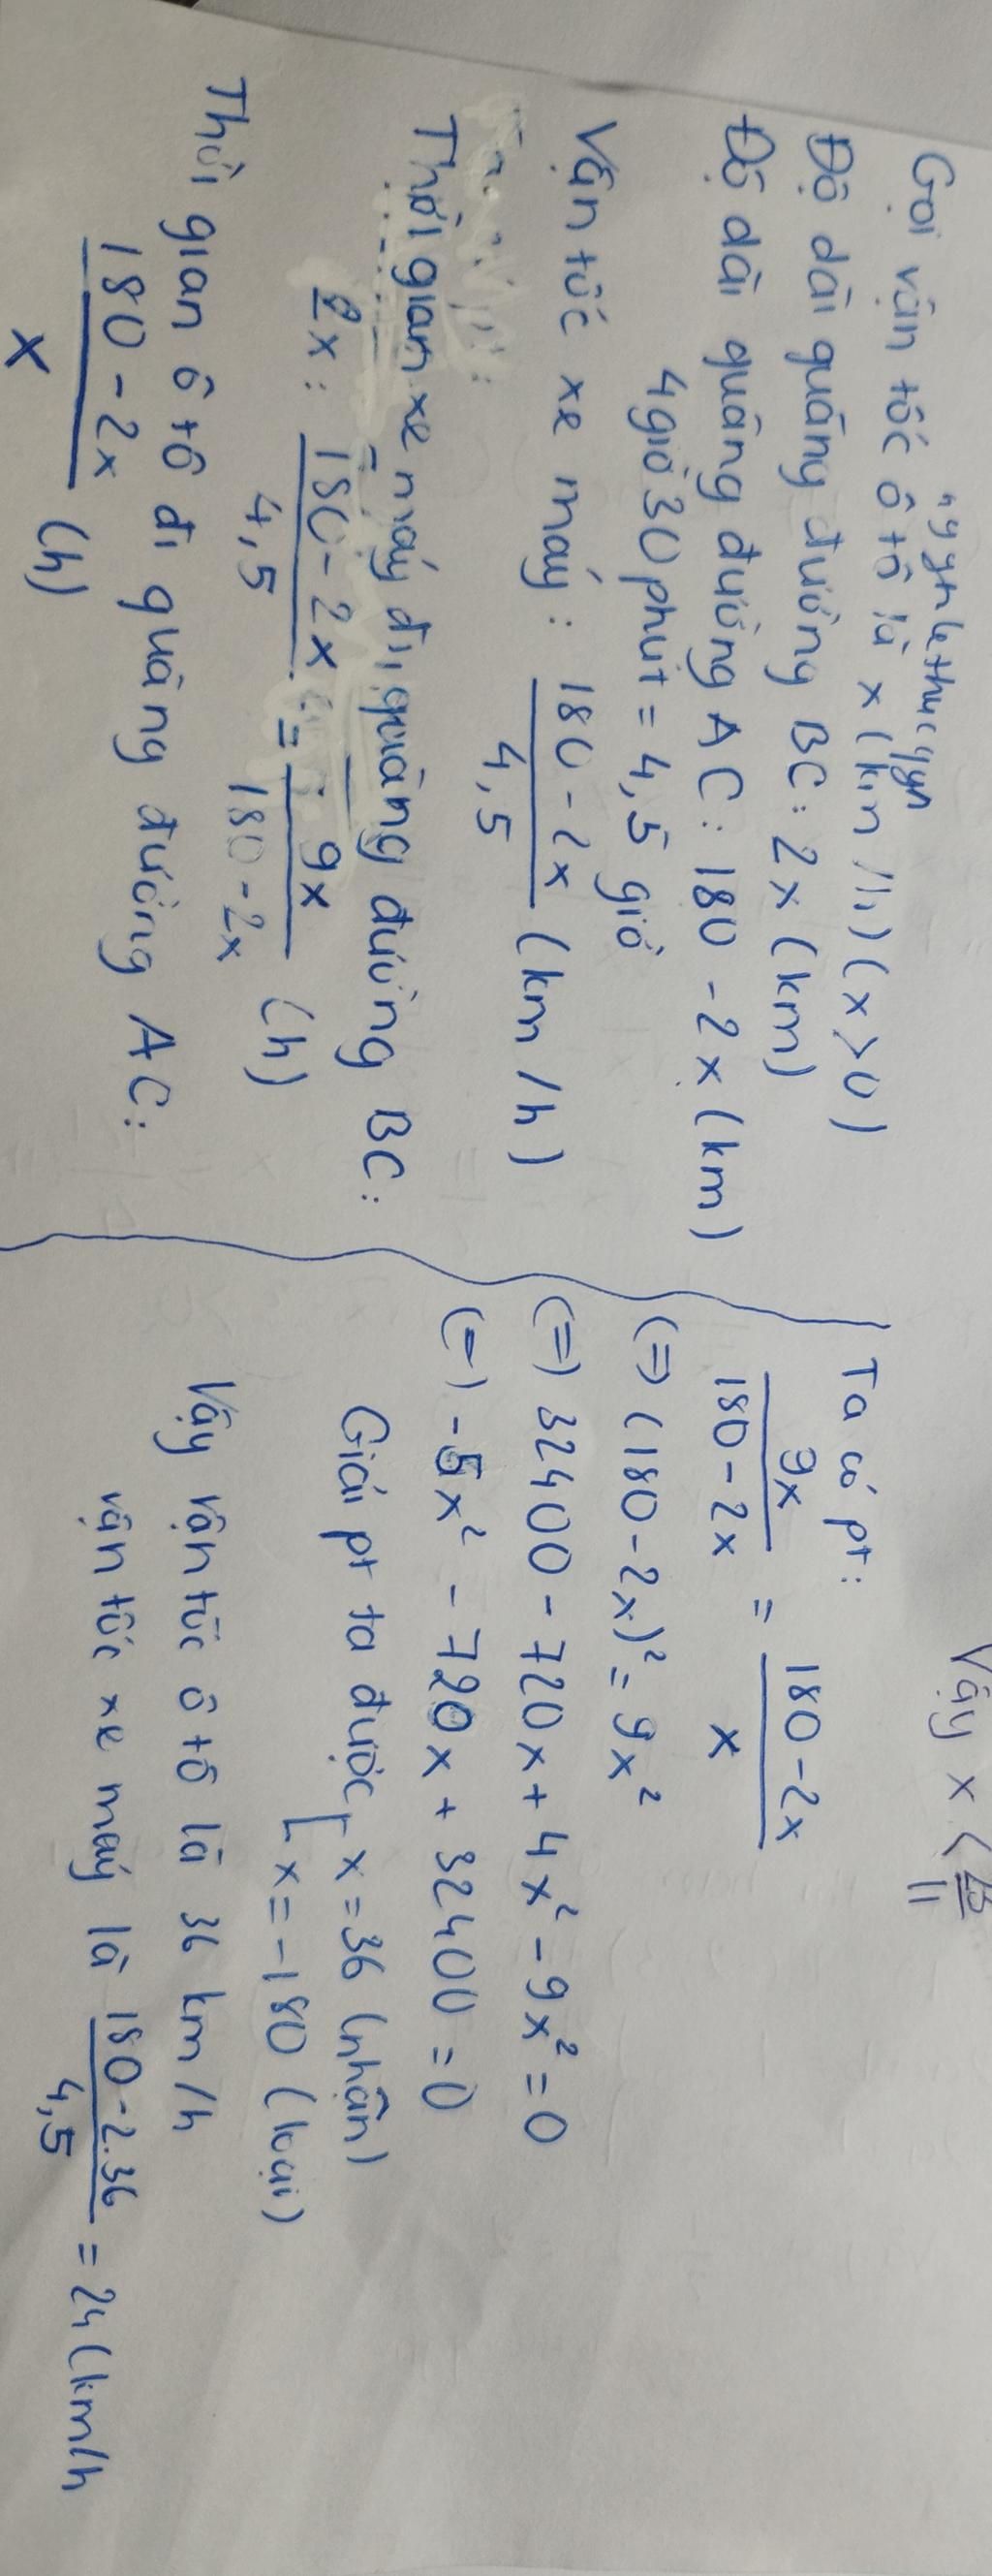 Gọi vận tốc ô tô là x (km/h) (x > 0)
Độ dài quãng đường BC: 2x (km)
Độ dài quãng đường AC: 180 - 2x (km)
4 giờ 30 phút = 4,5 giờ
Vận tốc xe máy: \frac{180 - 2x}{4,5} (km/h)
Thời gian xe máy đi quãng đường BC:
2x : \frac{180 - 2x}{4,5} = \frac{9x}{180 - 2x} (h)
Thời gian ô tô đi quãng đường AC:
\frac{180 - 2x}{x} (h)
Vậy x <
Ta có pt:
\frac{9x}{180 - 2x} = \frac{180 - 2x}{x}
(=) (180 - 2x)² = 9x²
(=) 32400 - 720x + 4x² - 9x² = 0
(=) -5x² - 720x + 32400 = 0
Giải pt ta được [ x = 36 (nhận)
x = -180 (loại)
Vậy vận tốc ô tô là 36 km/h
vận tốc xe máy là \frac{180 - 2.36}{4,5} = 24 (km/h